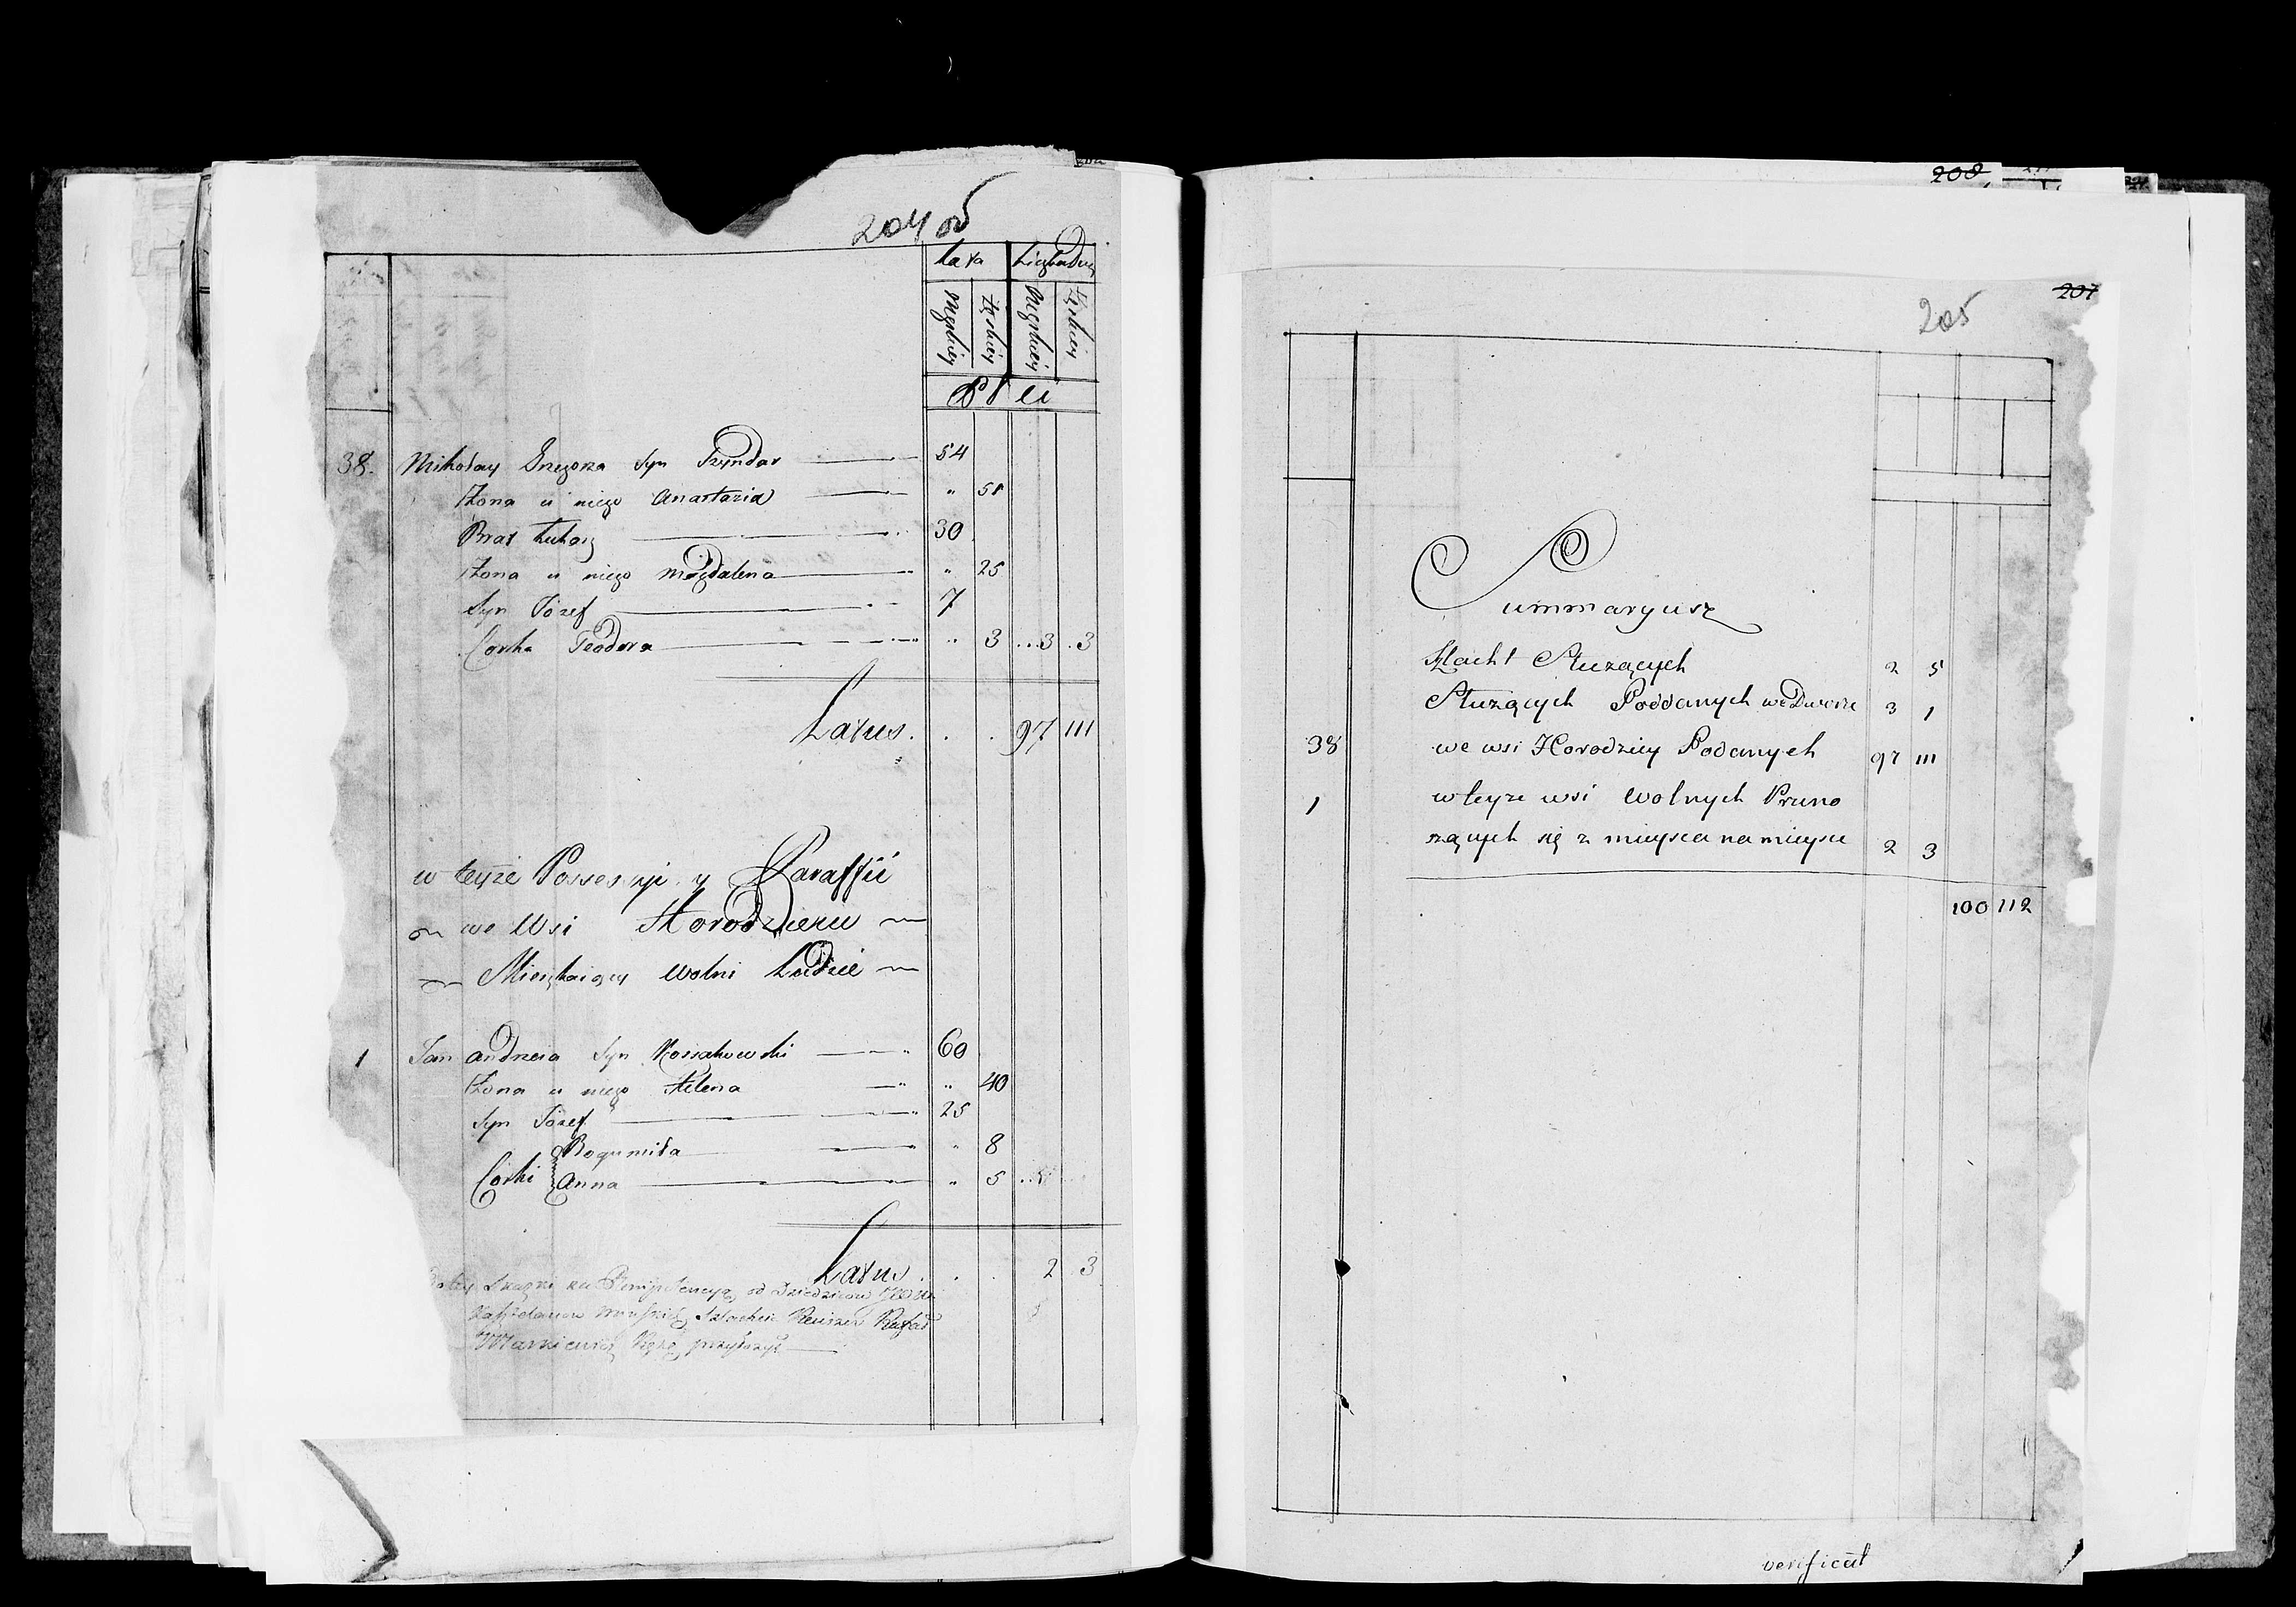 204 об
Lata Liczba Dusz
Męskiey Żęskiey Męskiey Żęskiey
Płci
38. Mikołay Grzegorza Syn Tryndar 54
Żona u niego Anastazia " 51
Brat Łukasz 30
Żona u niego Magdalena " 25
Syn Józef 7
Corka Teodora " 3 3 3
Latus 97 111
w teyże Possessyi y Paraffii
we Wsi Horodziecu
Mieszkaiący Wolni Ludzie
1 Jan Andrzeia Syn Kossakowski 60
Żona u niego Helena " 40
Syn Józef 25
Bogumiła " 8
Corki Anna " 5
Latus 2 3
Skazki od Dziedzicow
Szlachcic Rafał
przyłożył
208
207
205
Summaryusz
Szlacht Służących 2 5
Służących Poddanych we Dworze 3 1
38 we wsi Horodzicy Podanych 97 111
1 w teyze wsi Wolnych Przeno
szących się z mieysca na mieysce 2 3
100 112
verificat